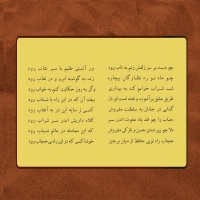 چو دست بر سر زلفش زنم به تاب رود ور آشتی طلبم با سر عتاب رود
چو ماه نو ره نظارگان بیچاره زند به گوشه ابرو و در نقاب رود
شب شراب خرابم کند به بیداری وگر به روز حکایت کنم به خواب رود
طریق عشق پرآشوب و فتنه است ای دل بیفتد آن که در این راه با شتاب رود
گدایی در جانان به سلطنت مفروش کسی ز سایه این در به آفتاب رود
حباب را چو فتد باد نخوت اندر سر کلاه داریش اندر سر شراب رود
دلا چو پیر شدی حسن و نازکی مفروش که این معامله در عالم شباب رود
حجاب راه تویی حافظ از میان برخیز خوشا کسی که در این راه بی حجاب رود